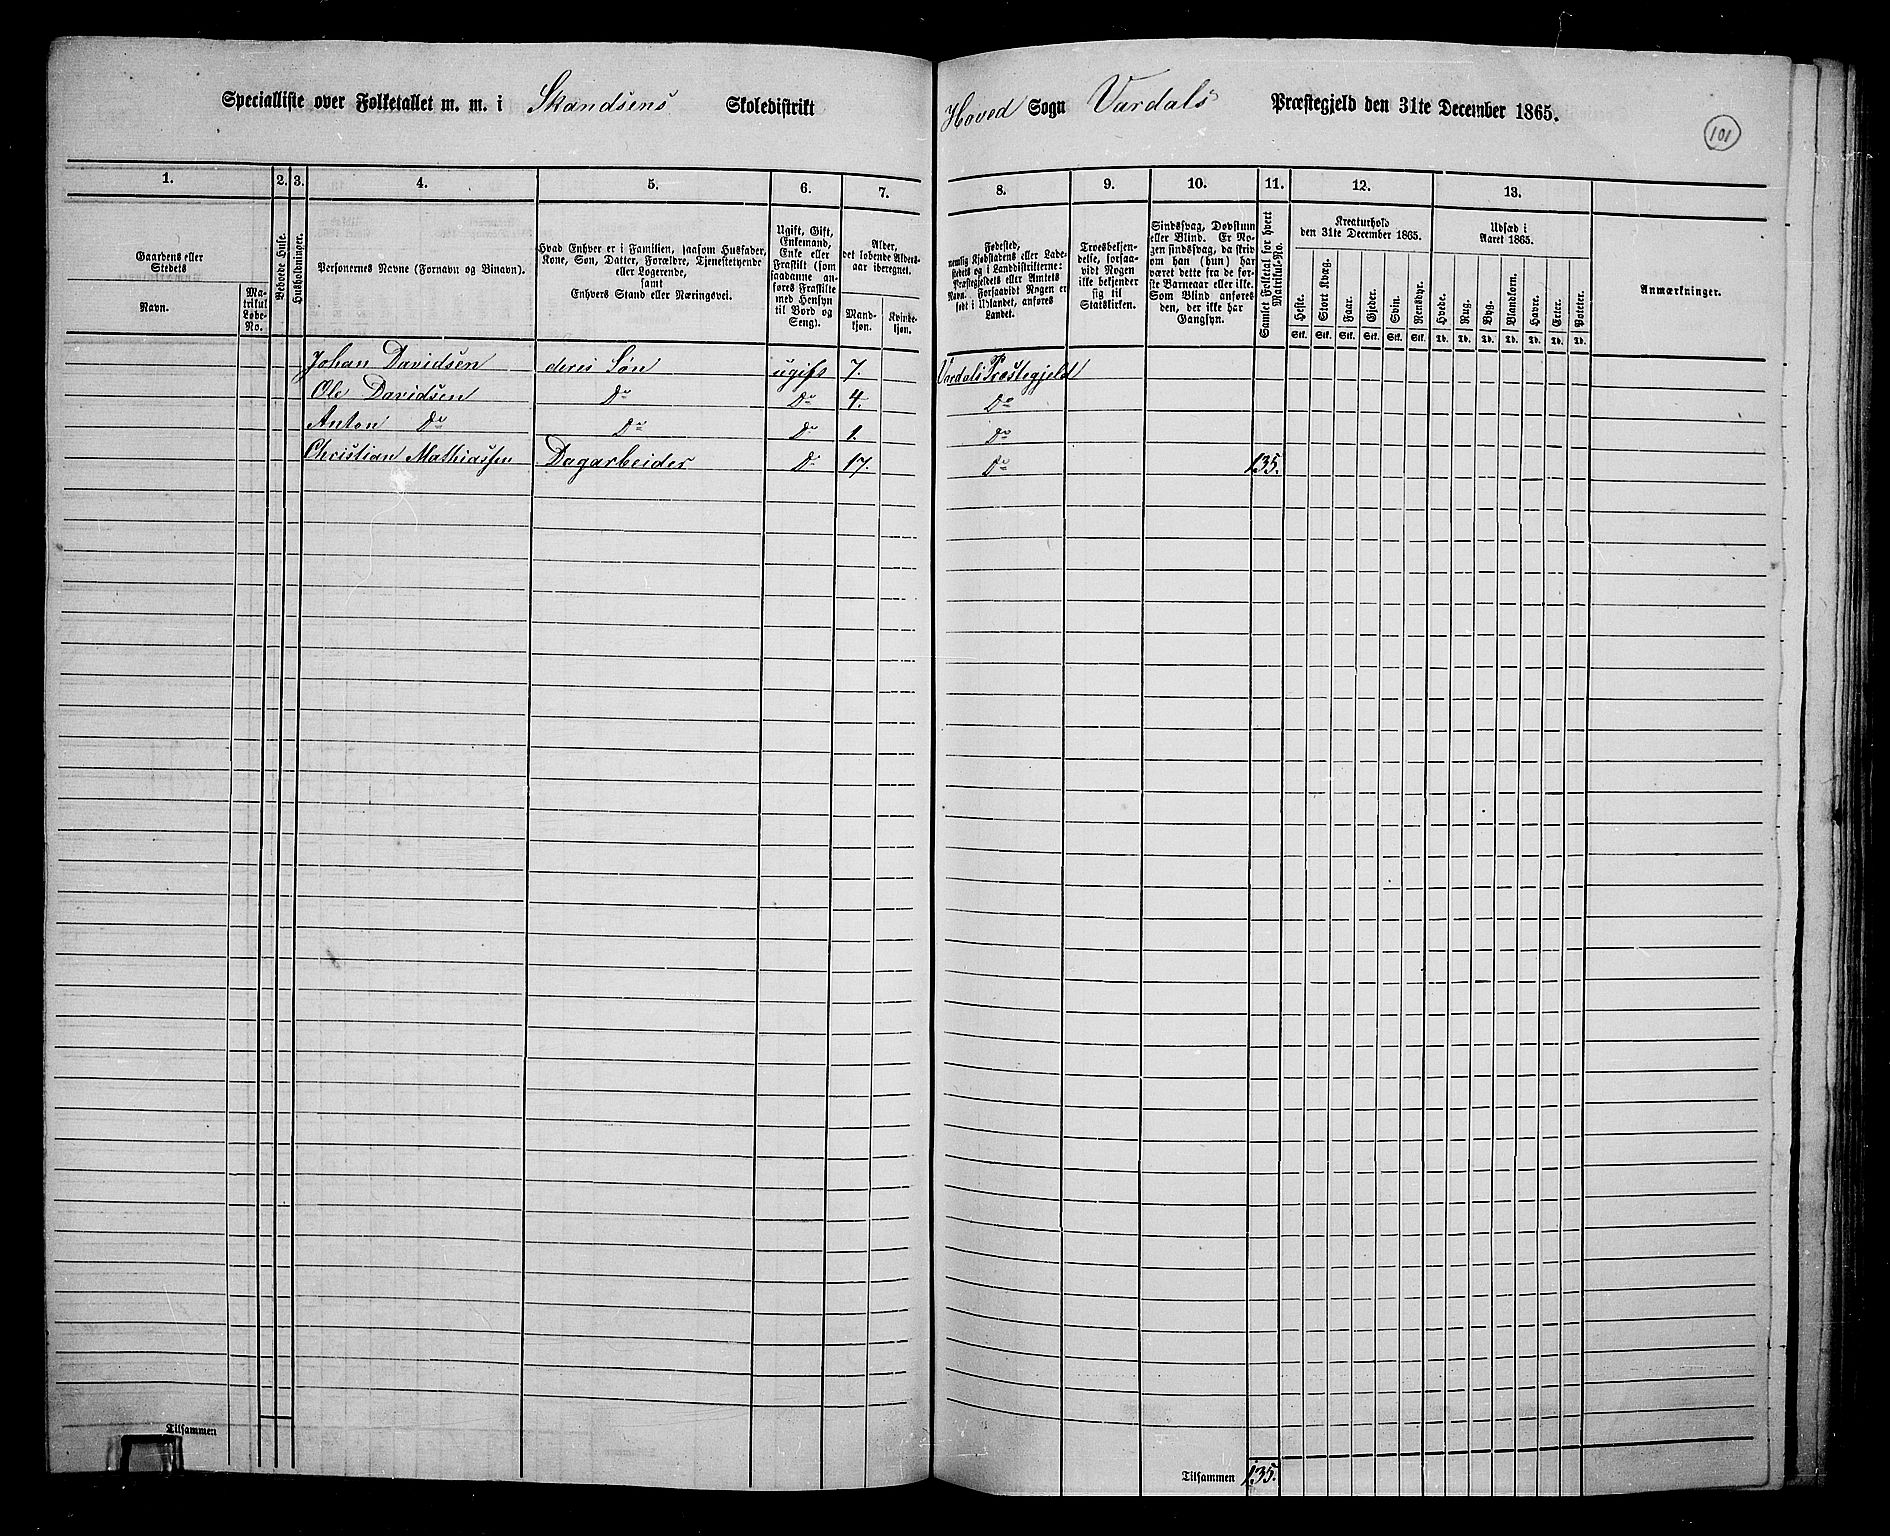 Specialliste over Folketallet m. m. i Skandsens Skoledistrikt
Hoved Sogn Vardals Præstegjeld den 31te December 1865.
101
1. 2. 3. 4. 5. 6. 7.
8. 9. 10. 11. 12. 13.
Gaardens eller Stedets
Navn.
Matrikul Løbe-No.
Beboede Huse.
Husholdninger.
Personernes Navne (Fornavn og Binavn).
Hvad Enhver er i Familien, saasom Husfader,
Kone, Søn, Datter, Forældre, Tjenestetyende
eller Logerende,
samt
Enhvers Stand eller Næringsvei.
Ugift, Gift,
Enkemand,
Enke eller
Fraskilt (som
saadanne an-
føres Fraskilte
med Hensyn
til Bord og
Seng).
Alder,
det løbende Alders-
aar iberegnet.
Mand-
kjøn.
Kvinde-
kjøn.
Fødested,
nemlig Kjøbstadens eller Lade-
stedets og i Landdistrikterne:
Præstegjeldets eller Amtets
Navn. Forsaavidt Nogen er
født i Udlandet, anføres
Landet.
Troesbekjen-
delse, forsaa-
vidt Nogen
ikke bekjender
sig til
Statskirken.
Sindssvag, Døvstum
eller Blind. Er No-
gen sindssvag, da skriv
om han (hun) har
været dette fra de før-
ste Barneaar eller ikke.
Som Blind anføres
den, der ikke har
Gangsyn.
Samlet Folketal for hvert
Matrikul-No.
Kreaturhold
den 31te December 1865.
Heste. Stort Kvæg. Faar. Gjeder. Svin. Rensdyr.
Stk. Stk. Stk. Stk. Stk. Stk.
Udsæd i
Aaret 1865.
Hvede. Rug. Byg. Blandkorn. Havre. Erter. Poteter.
Td. Td. Td. Td. Td. Td. Td.
Anmærkninger.
Johan Davidsen deres Søn ugift 7. Vardals Præstegjeld
Ole Davidsen Do Do 4. Do
Anton Do Do Do 1. Do
Christian Mathiassen Dagarbeider Do 17. Do 135.
Tilsammen
Tilsammen 135.